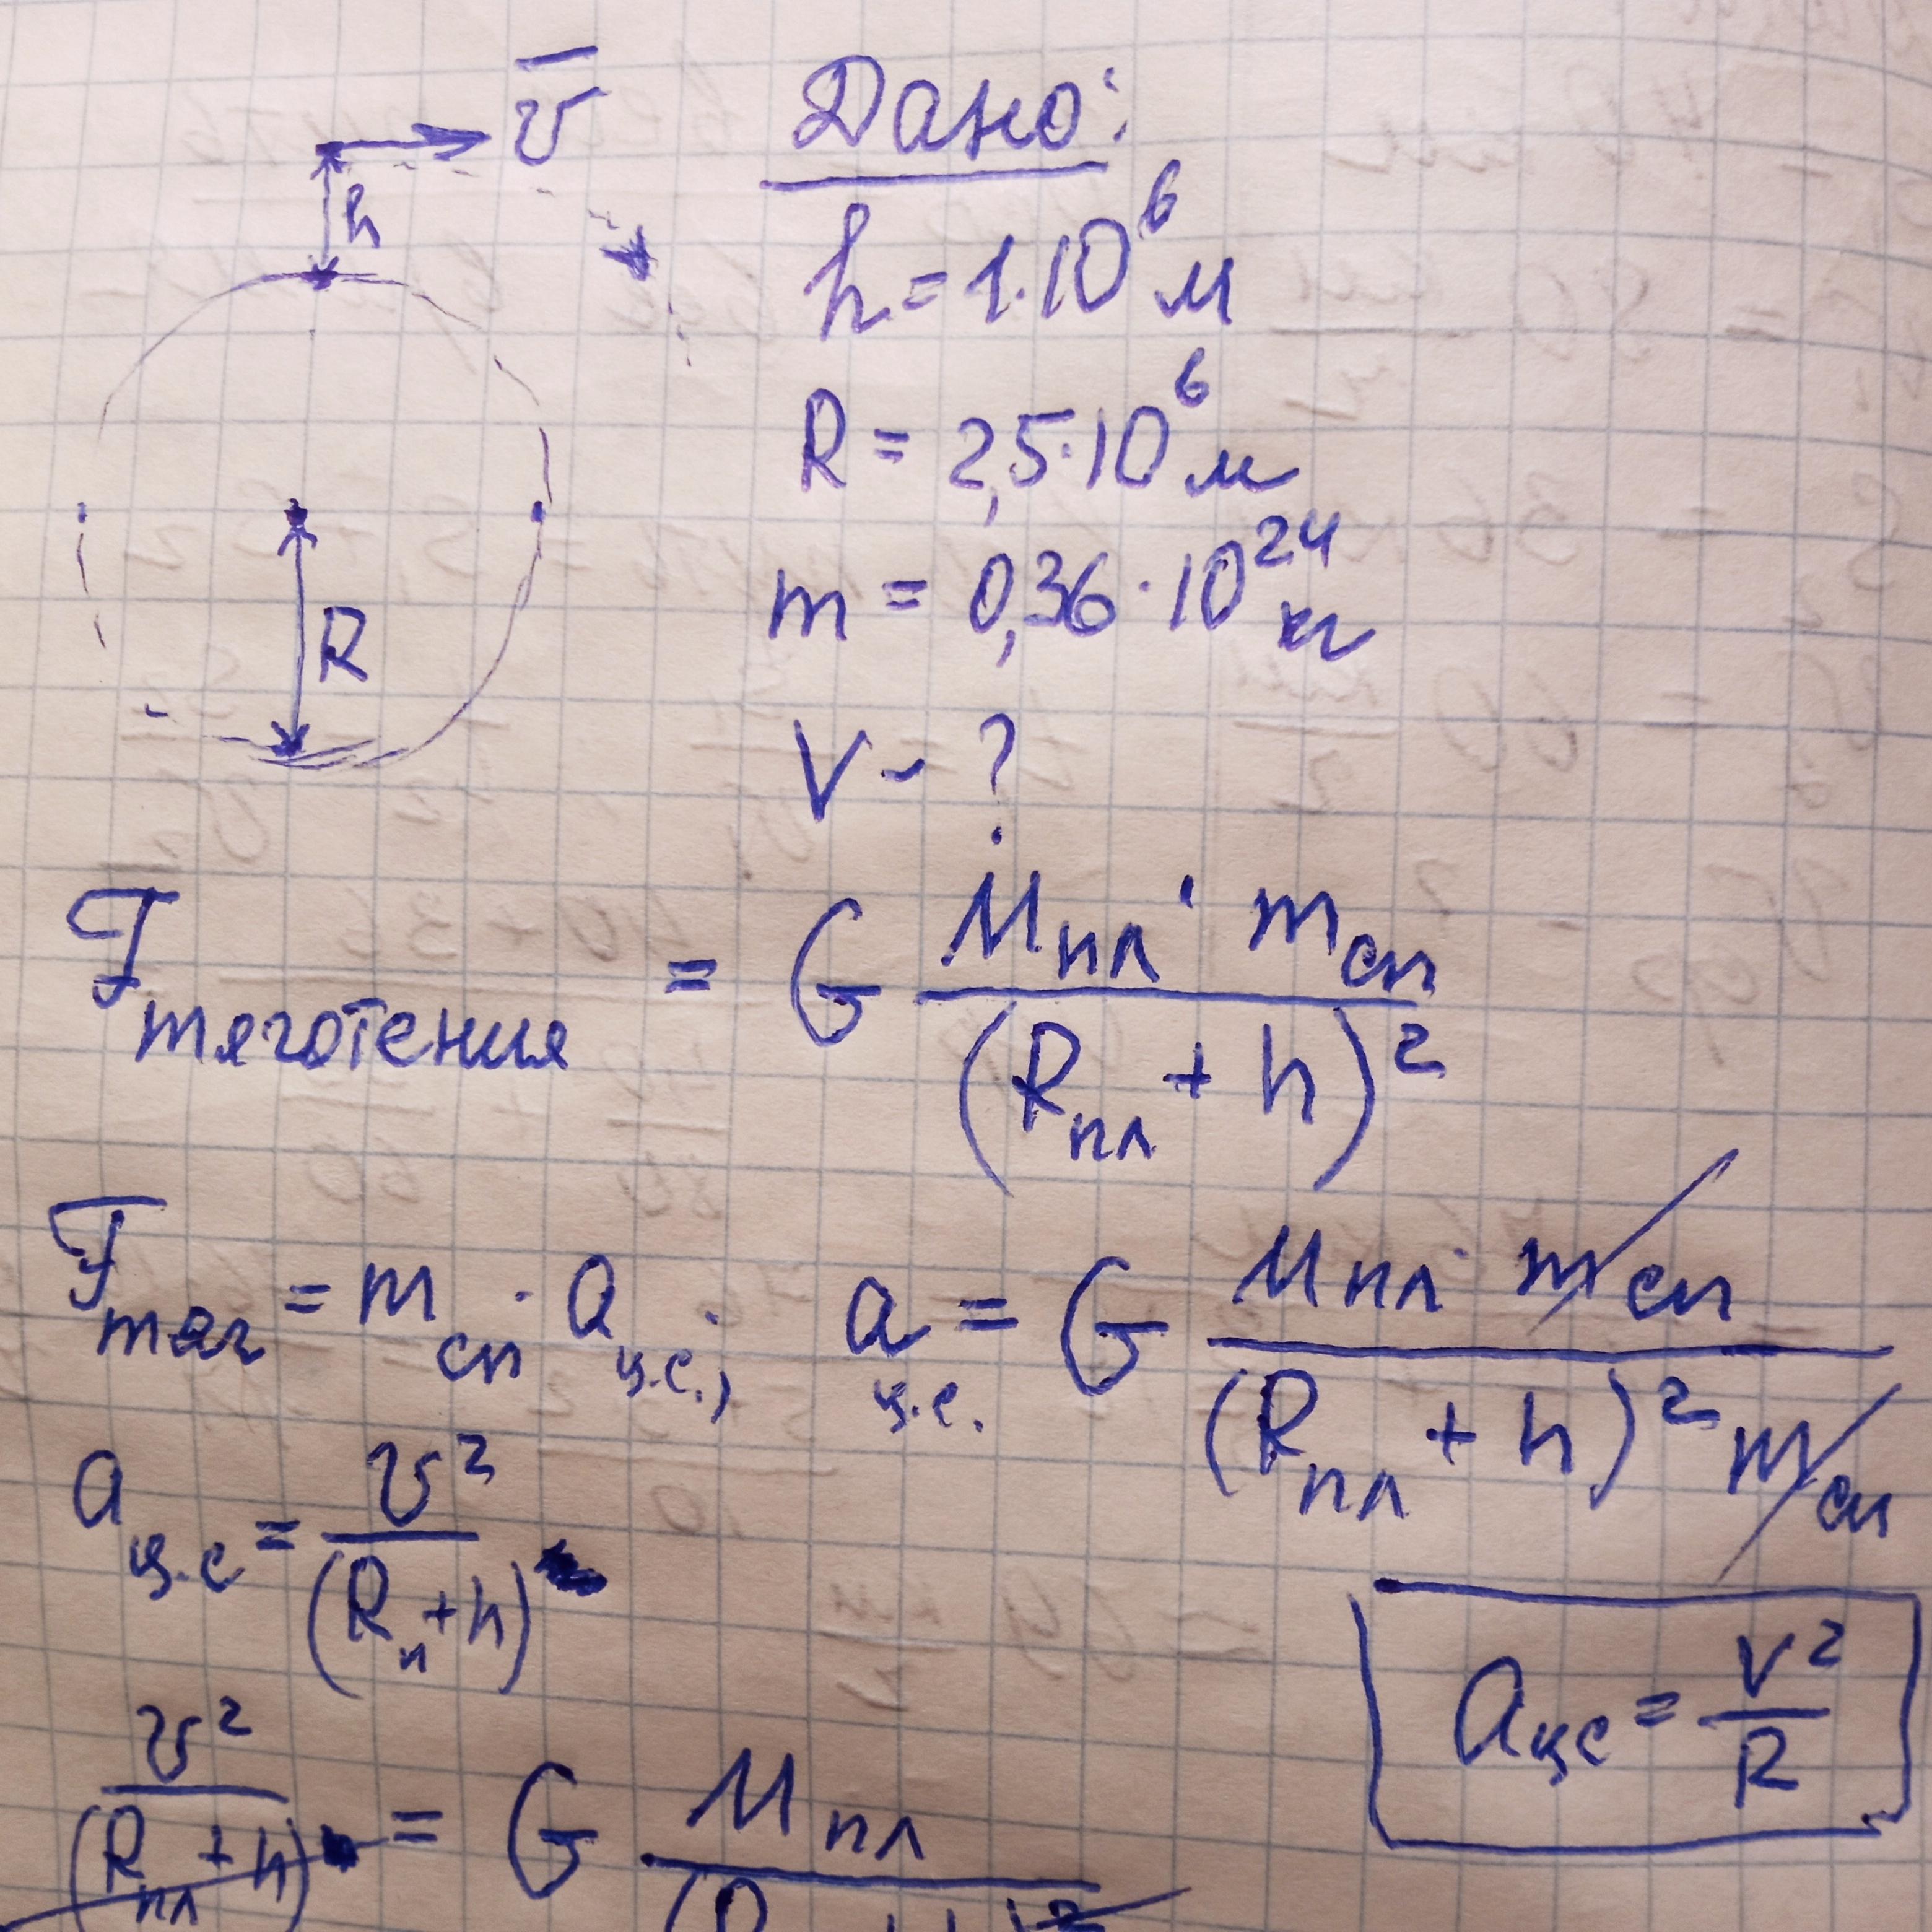 v̅
Дано:
h
h = 1·10⁶ м
R = 2,5·10⁶ м
m = 0,36·10²⁴ кг
R
V - ?
F тяготения = G (Mпл · mсп) / (Rпл + h)²
Fтяг = mсп · aц.с., aц.с. = G (Mпл · mсп) / ((Rпл + h)² mсп)
aц.с = v² / (Rп + h)
aцс = v² / R
v² / (Rпл + h) = G Mпл / (R + h)²